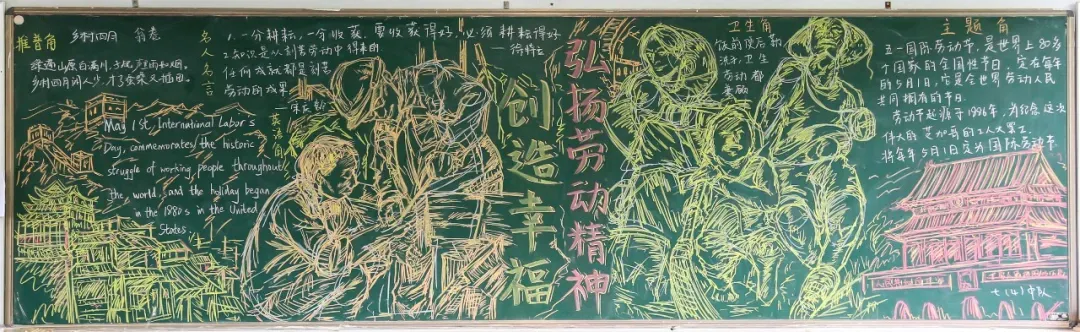 推普角
乡村四月 翁卷
绿遍山原白满川,子规声里雨如烟。
乡村四月闲人少,才了蚕桑又插田。
名人名言
1.一分耕耘,一分收获,要收获得好,必须耕耘得好
——徐特立
2.知识是从刻苦劳动中得来的
任何成就都是刻苦
劳动的成果
——宋庆龄
英语角
May 1st, International Labor's
Day, commemorates the historic
struggle of working people throughout
the world, and the holiday began
in the 1980s in the United
States.
创造幸福
弘扬劳动精神
卫生角
饭前便后勤
洗手,卫生
劳动都
兼顾
主题角
五一国际劳动节,是世界上80多
个国家的全国性节日。定在每年
的5月1日,它是全世界劳动人民
共同拥有的节日
劳动节起源于1986年,为纪念这次
伟大的芝加哥的工人大罢工,
将每年5月1日定为国际劳动节
七(4)中队